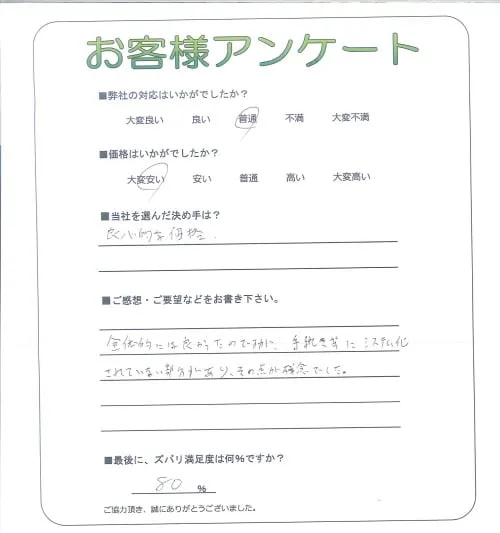 お客様アンケート
■弊社の対応はいかがでしたか？
大変良い 良い 普通 不満 大変不満
■価格はいかがでしたか？
大変安い 安い 普通 高い 大変高い
■当社を選んだ決め手は？
良心的な価格.
■ご感想・ご要望などをお書き下さい。
全体的には良かったのですが、手続き等にシステム化
されていない部分があり、その点が残念でした。
■最後に、ズバリ満足度は何%ですか？
80 %
ご協力頂き、誠にありがとうございました。